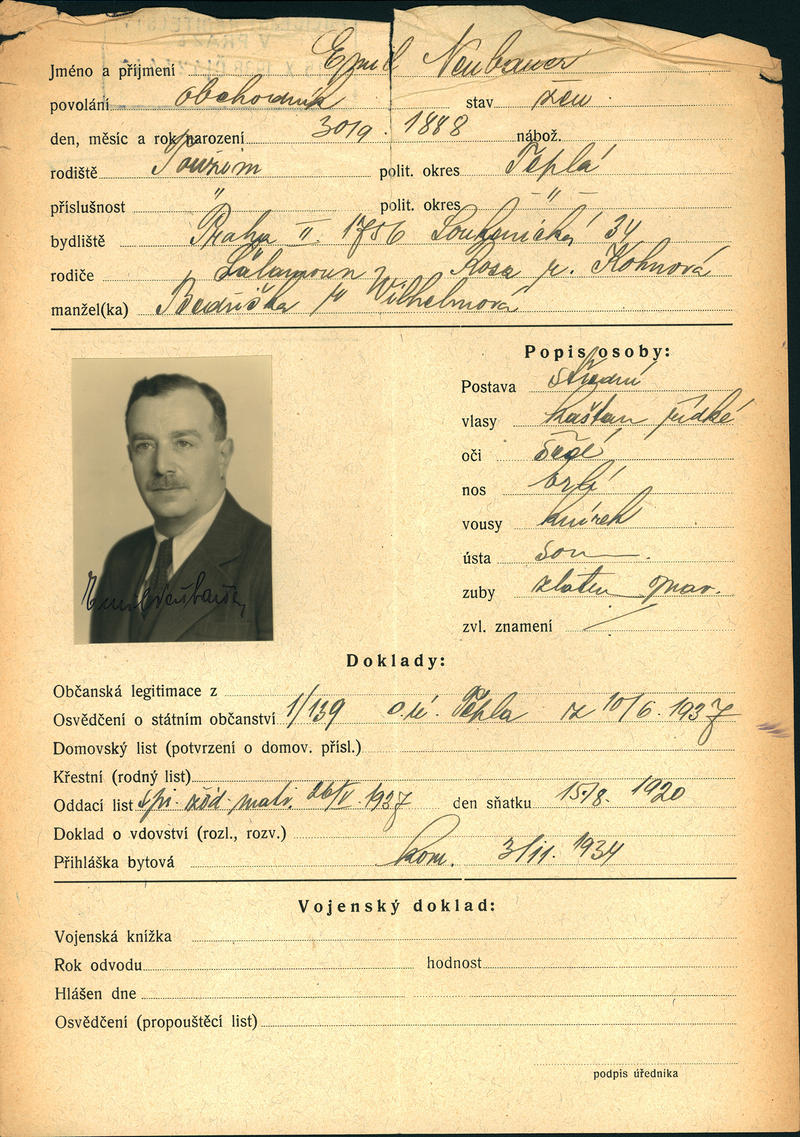 Jméno a příjmení Emil Neubauer
povolání obchodník stav žen
den, měsíc a rok narození 30/9. 1888 nábož.
rodiště Toužim polit. okres Teplá
příslušnost " polit. okres - " -
bydliště Praha II. 1756 Soukenická 34
rodiče Rosa r. Kohnová
manžel(ka) Bedřiška Wilhelmová
Popis osoby:
Postava střední
vlasy kaštan řídké
oči šedé
nos
vousy knírek
ústa
zuby
zvl. znamení
Emil Neubauer
Doklady:
Občanská legitimace z
Osvědčení o státním občanství 1/139 o.ú. Teplá z 10/6. 1937
Domovský list (potvrzení o domov. přísl.)
Křestní (rodný list)
Oddací list žid. matr. 26/V. 1937 den sňatku 15/8. 1920
Doklad o vdovství (rozl., rozv.)
Přihláška bytová kom. 3/11. 1934
Vojenský doklad:
Vojenská knížka
Rok odvodu hodnost
Hlášen dne
Osvědčení (propouštěcí list)
podpis úředníka